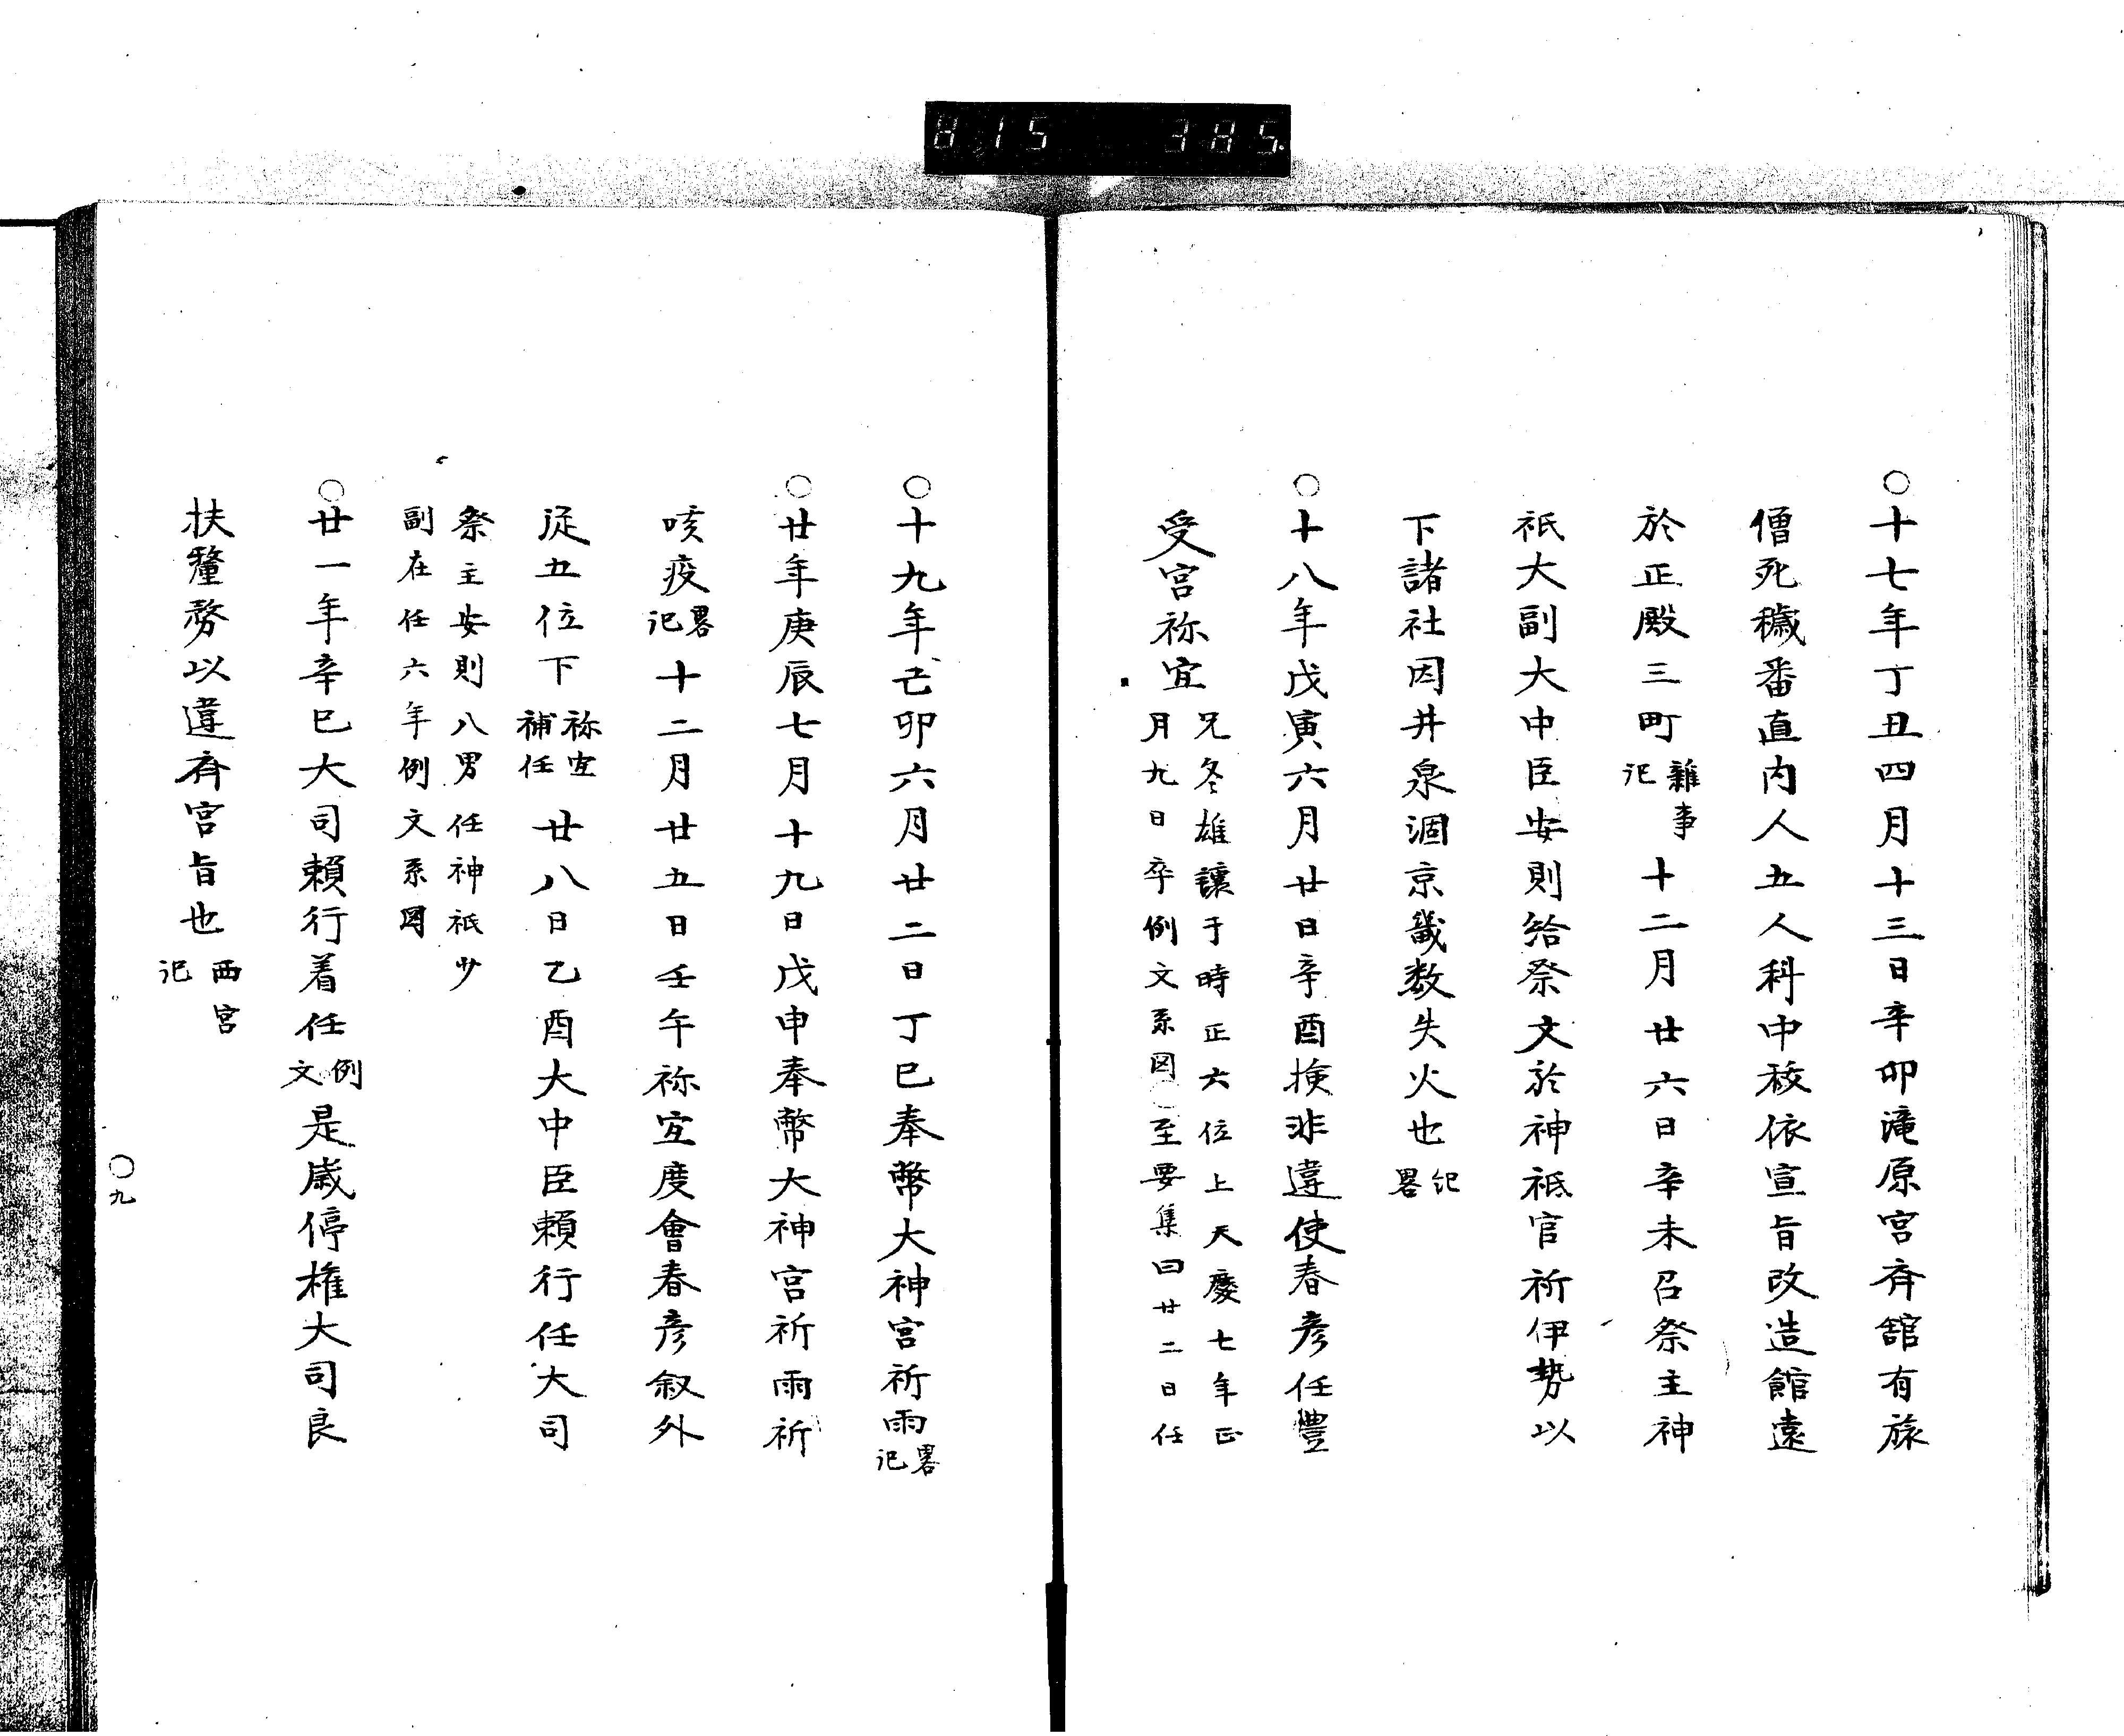 815 385
○十七年丁丑四月十三日辛卯滝原宮斉舘有旅
僧死穢番直内人五人科中祓依宣旨改造館遠
於正殿三町雜事記十二月廿六日辛未召祭主神
祇大副大中臣安則給祭文於神祇官祈伊勢以
下諸社因井泉涸京畿数失火也記畧
○十八年戊寅六月廿日辛酉検非違使春彦任豐
受宮祢宜兄冬雄讓于時正六位上天慶七年正
月九日卒例文系図○至要集曰廿二日任
○十九年己卯六月廿二日丁巳奉幣大神宮祈雨畧記
○廿年庚辰七月十九日戊申奉幣大神宮祈雨祈
咳疫畧記十二月廿五日壬午祢宜度會春彦叙外
従五位下祢宜補任廿八日乙酉大中臣頼行任大司
祭主安則八男任神祇少
副在任六年例文系図
○廿一年辛巳大司頼行着任例文是歳停権大司良
扶釐務以違斉宮旨也西宮記
○九